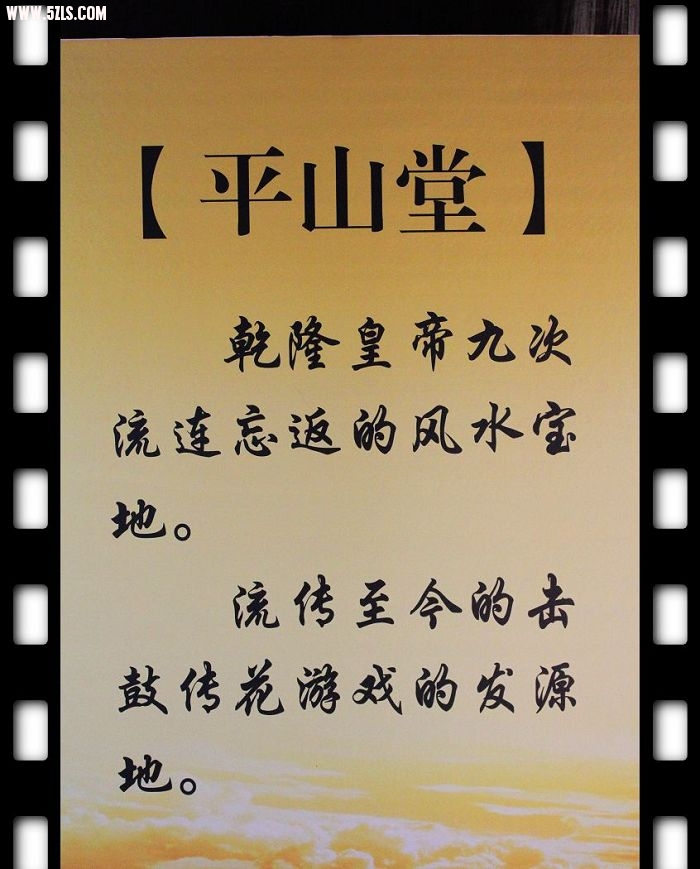 WWW.5ZLS.COM
【平山堂】
乾隆皇帝九次
流连忘返的风水宝
地。
流传至今的击
鼓传花游戏的发源
地。